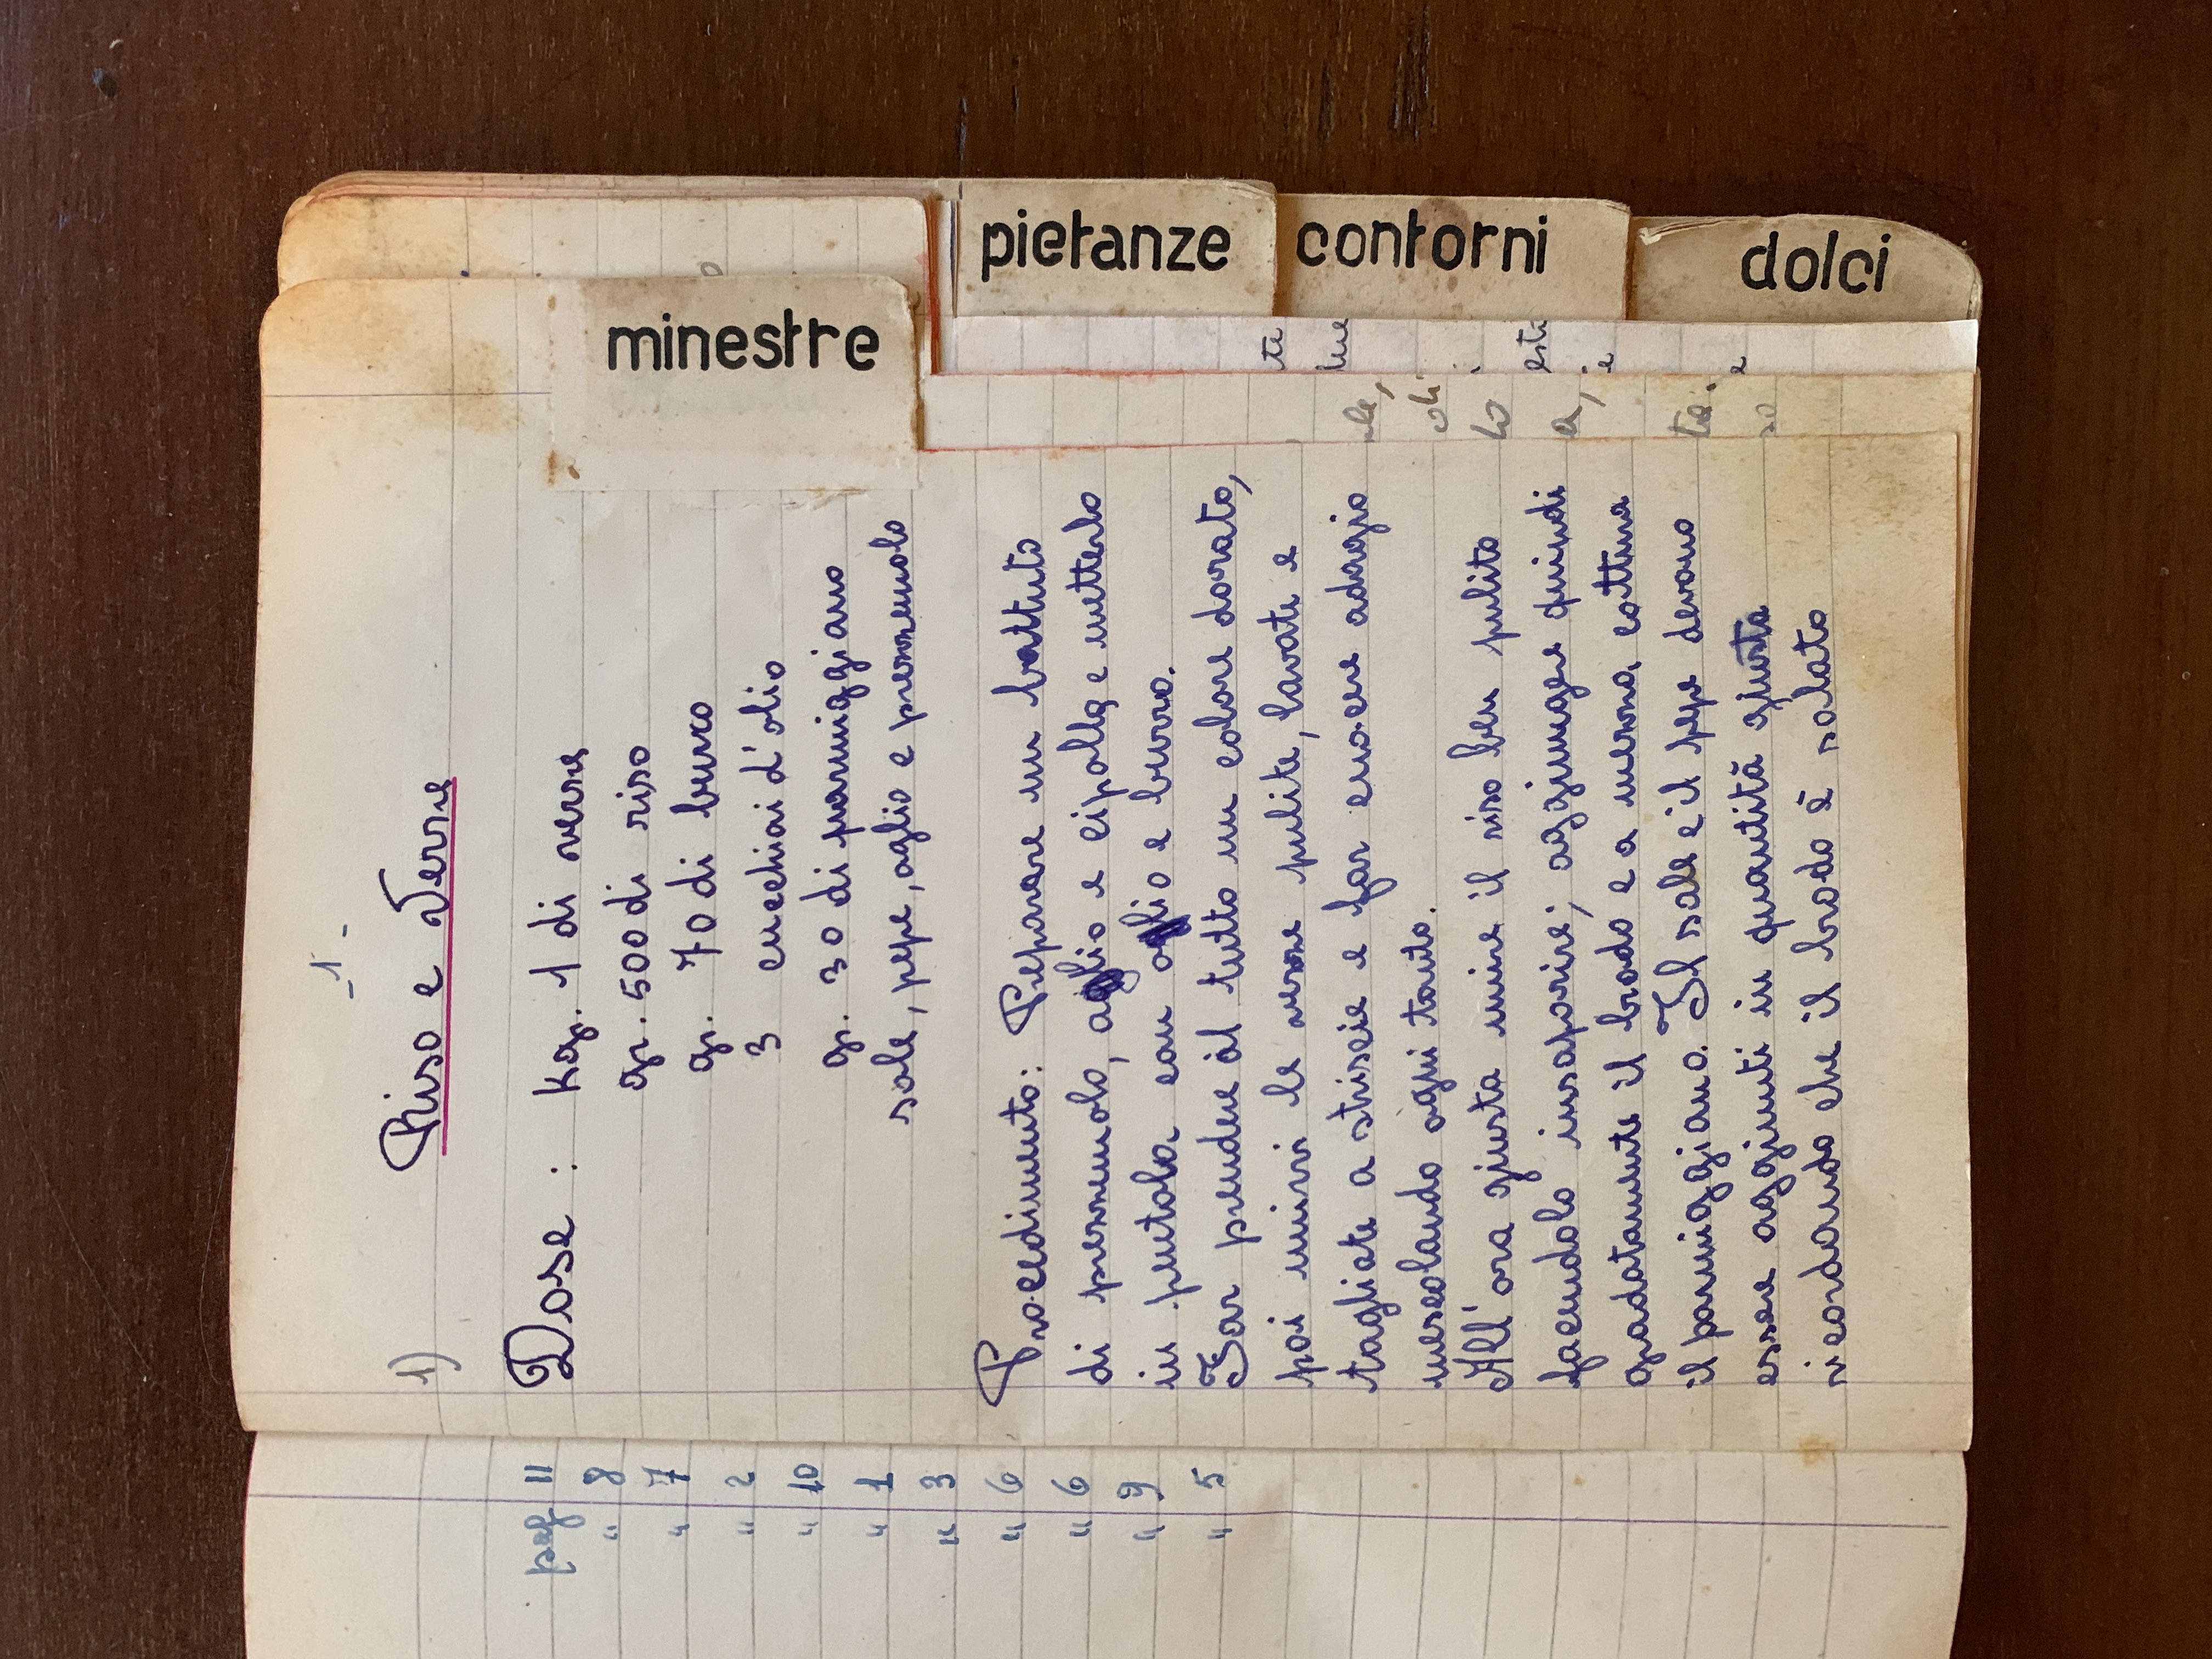 pag 11
" 8
" 7
" 2
" 10
" 1
" 3
" 6
" 6
" 9
" 5
- 1 -
1) Riso e Verze
Dose : Kgr. 1 di verze
gr. 500 di riso
gr. 70 di burro
3 cucchiai d'olio
gr. 30 di parmiggiano
sale, pepe, aglio e prezzemolo
Procedimento: Preparare un battuto
di prezzemolo, aglio e cipolla e metterlo
in pentola con oglio e burro.
Far prendere al tutto un colore dorato,
poi unirvi le verze pulite, lavate e
tagliate a striscie e far cuocere adagio
mescolando ogni tanto.
All'ora giusta unire il riso ben pulito
facendolo insaporire; aggiungere quindi
gradatamente il brodo e a mezza cottura
il parmiggiano. Il sale e il pepe devono
essere aggiunti in quantità giusta
ricordando che il brodo è salato
minestre
pietanze
contorni
dolci